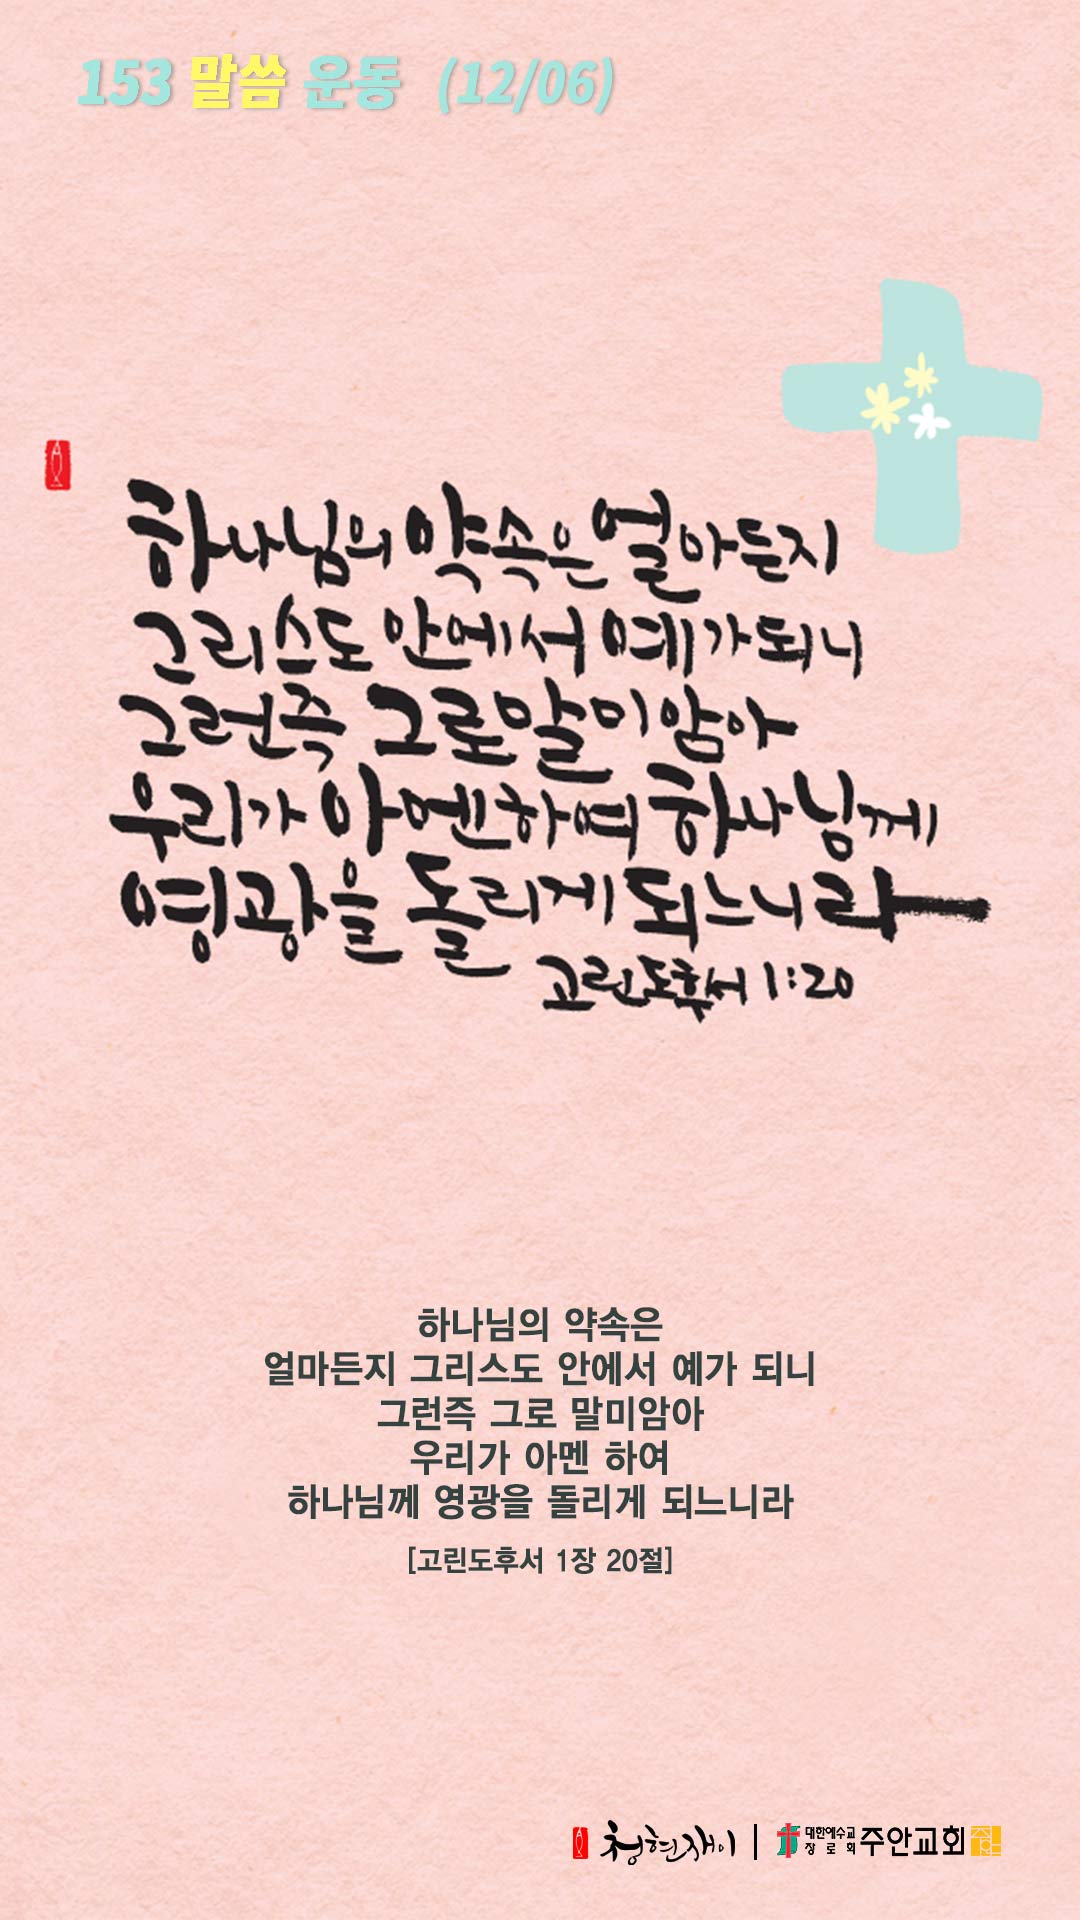 153 말씀 운동 (12/06)
하나님의 약속은 얼마든지
그리스도 안에서 예가되니
그런즉 그로말미암아
우리가 아멘하여 하나님께
영광을 돌리게 되느니라
고린도후서 1:20
하나님의 약속은
얼마든지 그리스도 안에서 예가 되니
그런즉 그로 말미암아
우리가 아멘 하여
하나님께 영광을 돌리게 되느니라
[고린도후서 1장 20절]
청현재이 | 대한예수교
장로회 주안교회